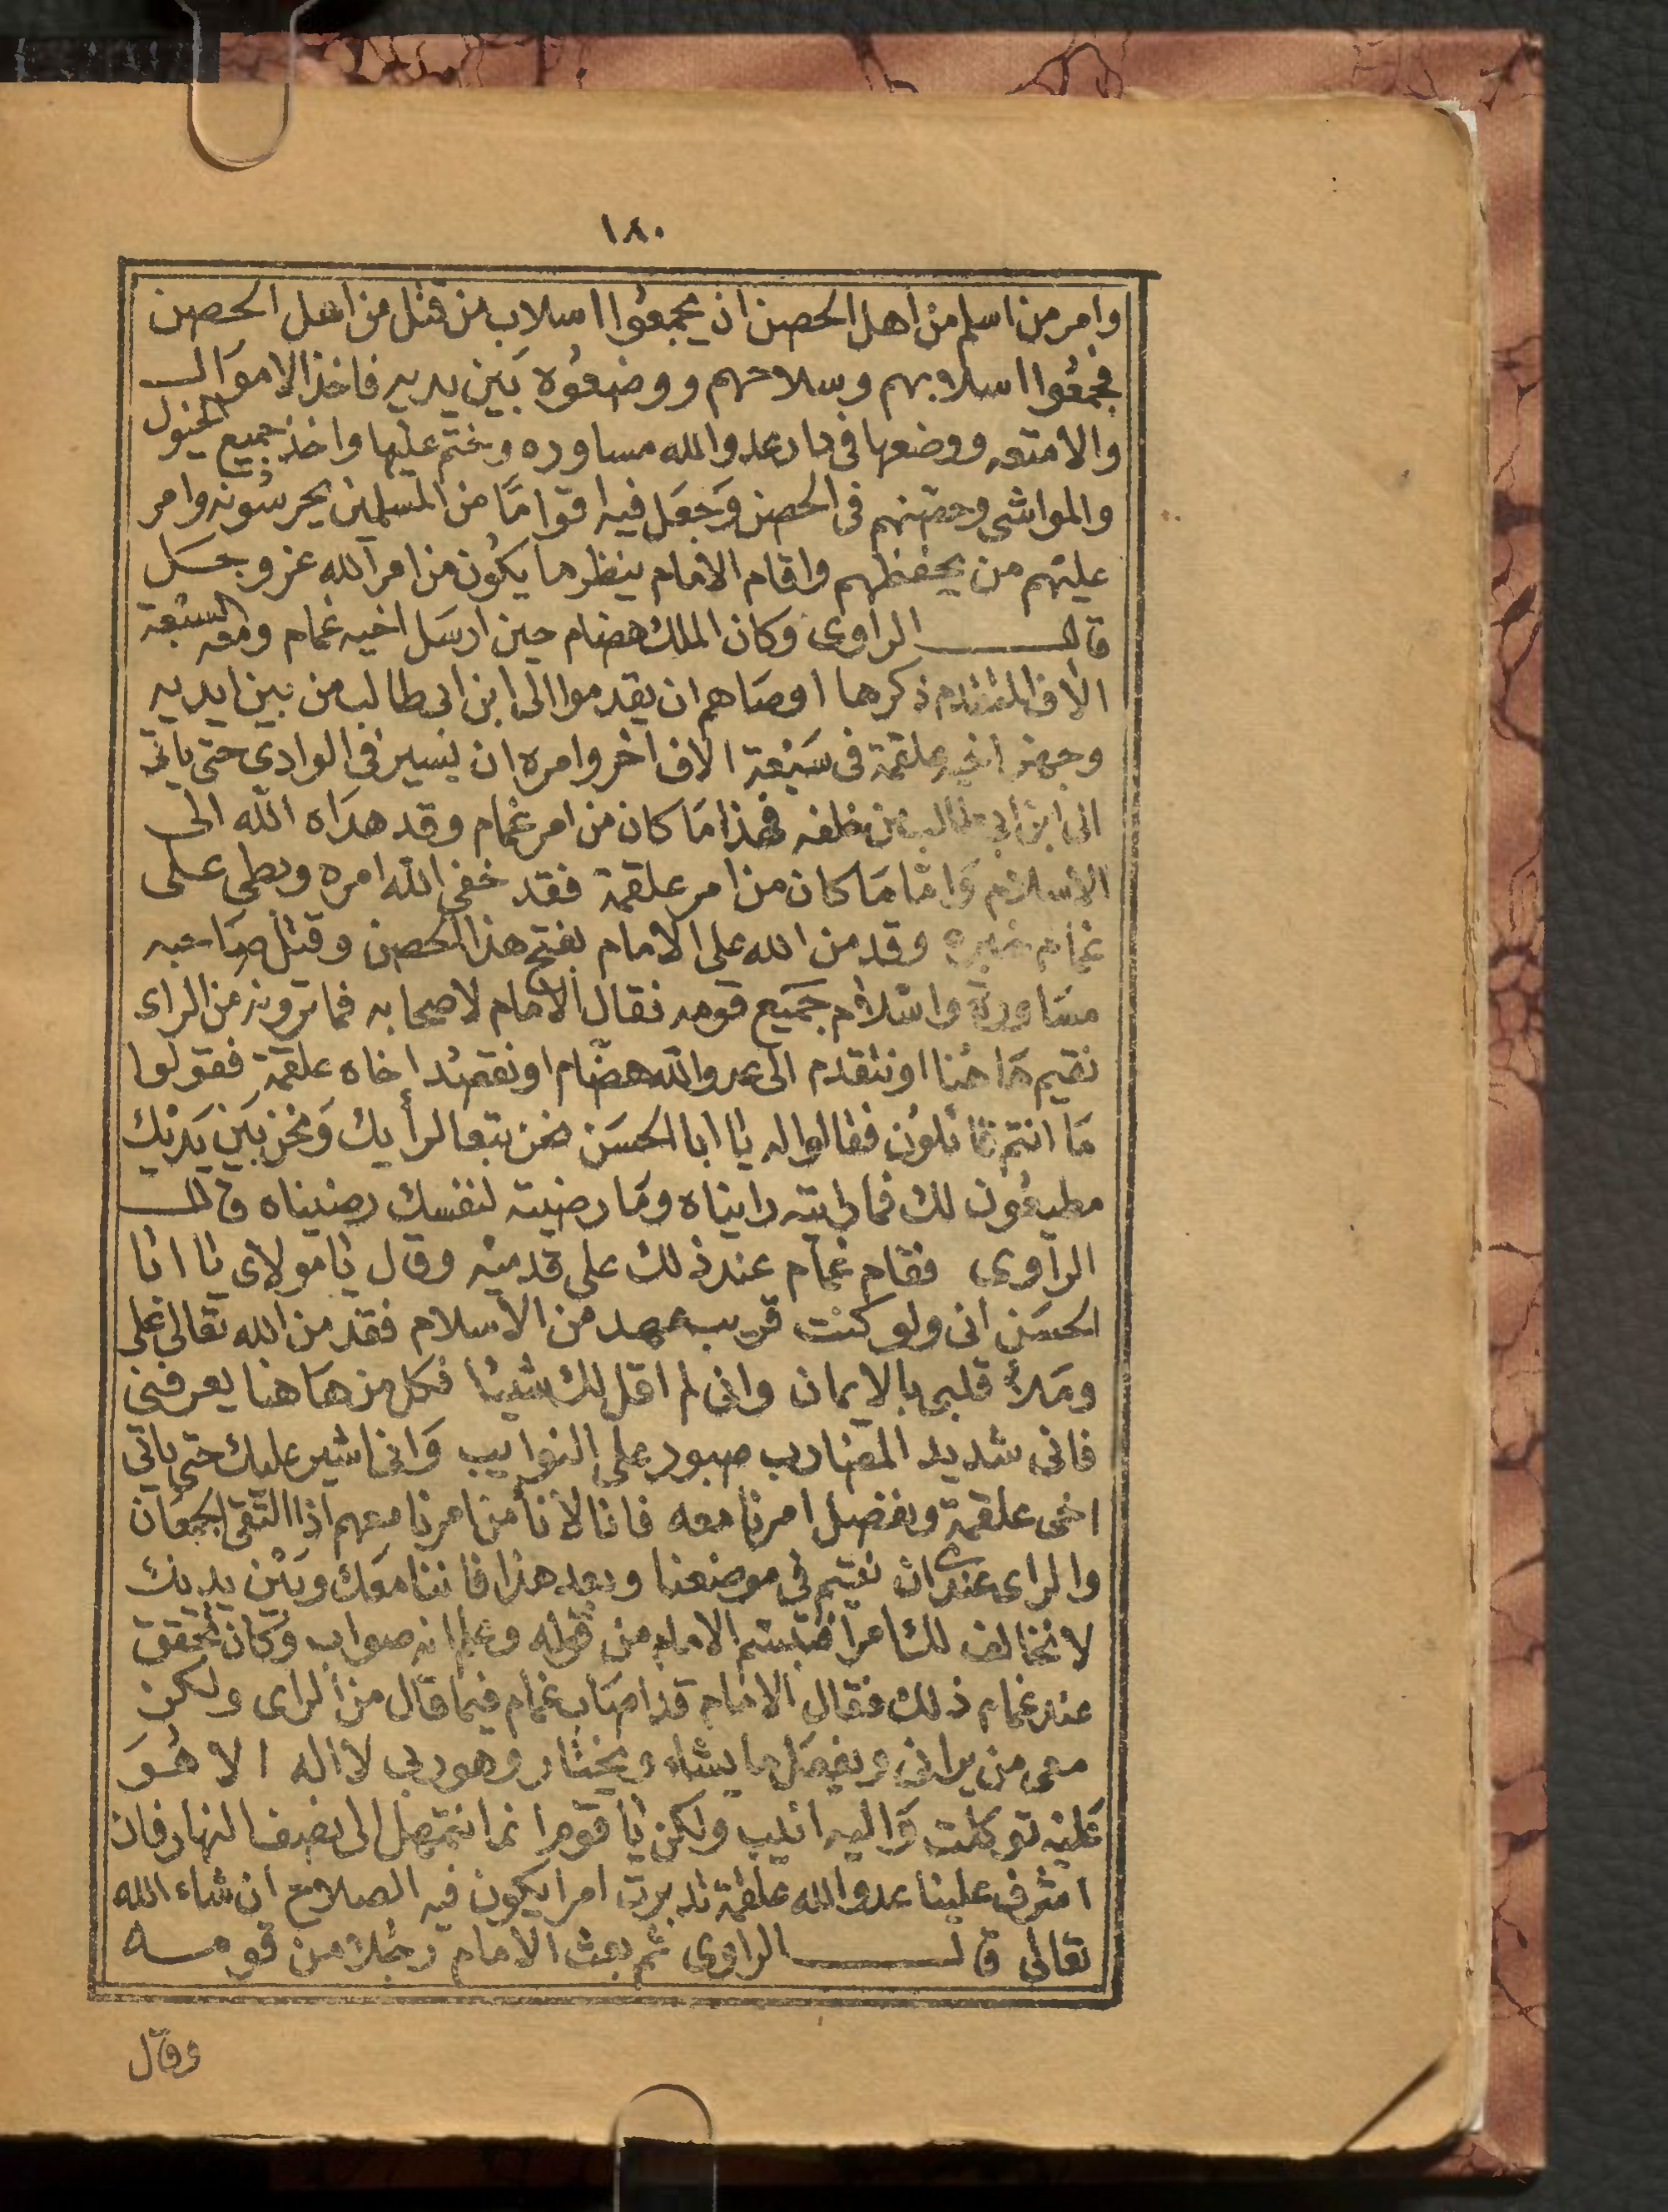 ١٨٠
وامر من اسلم من اهل الحصن ان يجمعوا اسلاب من قتل من اهل الحصن
فجمعوا اسلابهم وسلاحهم ووضعوه بين يديه فاخذ الاموال
والامتعه ووضعها في دار عدو الله مساوره وختم عليها واخذ جميع الخيول
والمواشي وحصنهم في الحصن وجعل فيه اقواما من المسلمين يحرسونه وامر
عليهم من يحفظهم واقام الامام ينظر ما يكون من امر الله عز وجل
قال الراوى وكان الملك هضام حين ارسل اخيه غمام ومعه السبعة
الاف المتقدم ذكرها اوصاهم ان يقدموا الى ابن ابى طالب من بين ايديه
وجهز اخيه علقمة فى سبعة الاف اخر وامره ان يسير فى الوادي حتى ياتى
الى ابن ابى طالب من خلفه فهذا ما كان من امر غمام وقد هداه الله الى
الاسلام واما ما كان من امر علقمة فقد خفى الله امره وبطى على
غمام خبره وقد من الله على الامام بفتح هذا الحصن وقتل صاحبه
مساورة واسلام جميع قومه فقال الامام لاصحابه فما ترونه من الراى
نقيم هاهنا او نتقدم الى عدو الله هضام او نقصد اخاه علقمة فقولوا
ما انتم قائلون فقالوا له يا ابا الحسن نحن تبعا لرأيك ونحن بين يديك
مطيعون لك فما رايته رايناه وما رضيته لنفسك رضيناه قال
الراوى فقام غمام عند ذلك على قدميه وقال يا مولاى يا ابا
الحسن انى ولو كنت قريب عهد من الاسلام فقد من الله تعالى على
وملأ قلبى بالايمان وانى لم اقل لك شيئا فكل من هاهنا يعرفنى
فانى شديد المضارب صبور على النوايب وانى اشير عليك حتى ياتي
اخى علقمة ونفصل امرنا معه فانا لا نأمن امرنا معهم اذا التقى الجمعان
والراى عندى ان نقيم في موضعنا وبعد هذا فاننا معك وبين يديك
لا نخالف لك امرا فتبسم الامام من قوله وعلم انه صواب وكان تحقق
عند غمام ذلك فقال الامام قد اصاب غمام فيما قال من الراى ولكن
معى من يرانى ويفعل ما يشاء ويختار وهو ربى لا اله الا هو
عليه توكلت واليه انيب ولكن يا قوم انما نتمهل الى نصف النهار فان
اشرف علينا عدو الله علقمة تدبرت امرا يكون فيه الصلاح ان شاء الله
تعالى قال الراوى ثم بعث الامام رجلا من قومه
وقال